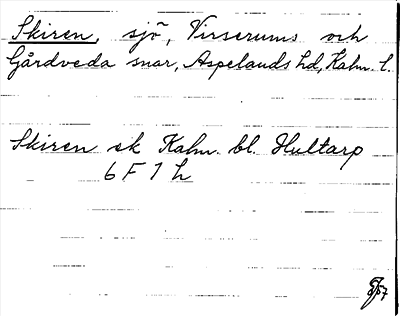 Skiren, sjö, Virserums och
Gårdveda snar, Aspelands hd, Kalm. l.
Skiren ek Kalm. bl. Hultarp
6 F 7 h